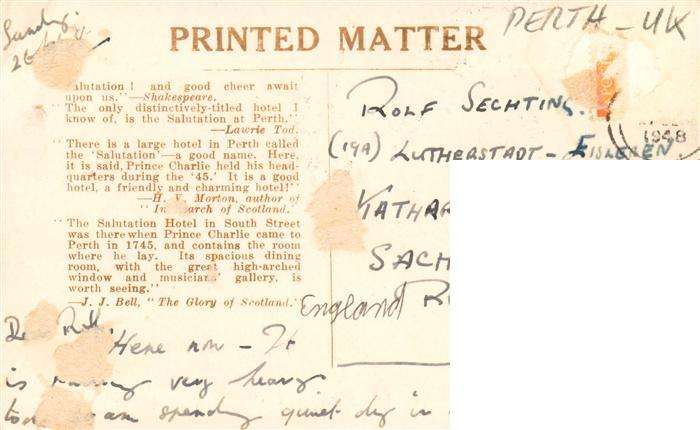 Sunday
26
PRINTED MATTER
PERTH - UK
alutation! and good cheer await
upon us."—Shakespeare.
"The only distinctively-titled hotel I
know of, is the Salutation at Perth."
—Lawrie Tod.
"There is a large hotel in Perth called
the 'Salutation'—a good name. Here,
it is said, Prince Charlie held his head-
quarters during the '45.' It is a good
hotel, a friendly and charming hotel!"
—H. V. Morton, author of
"In arch of Scotland."
"The Salutation Hotel in South Street
was there when Prince Charlie came to
Perth in 1745, and contains the room
where he lay. Its spacious dining
room, with the great high-arched
window and musicians' gallery, is
worth seeing."
—J. J. Bell, "The Glory of Scotland."
1948
ROLF SECHTING.
(19A) LUTHERSTADT - EISLEBEN
KATHAR
SACH
England R
Here now - It
is very heavy
am spending quiet day in